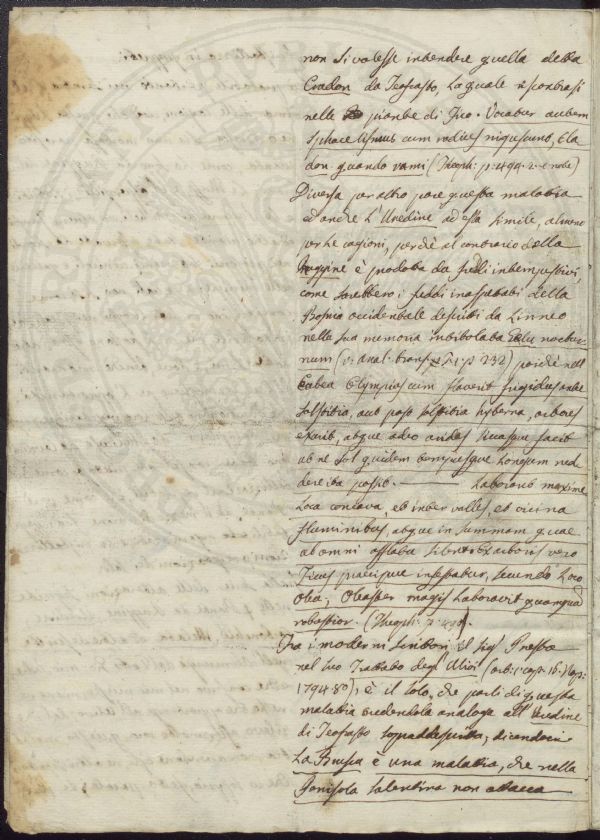 non si volesse intendere quella della
Cradon da Teofrasto, la quale riscontrasi
nelle piante di Fico. Vocatur autem
sphacelismus cum radices nigrescunt,
don quando rami (Theoph: p: 494. 2. e note)
Diversa per altro pare questa malatia
ed anche l'Uredine ad essa simile, almeno
per le cagioni, perchè al contrario della
Ruggine è prodotta da freddi intempestivi,
come sarebbero i freddi inaspettati della
Bosnia occidentale descritti da Linneo
nella sua memoria intitolata noctur-
num (v: anal: trans: p 232) poichè nell'
Eubea Olympias cum flaverit frigidus ante
solstitia, aut post solstitia hyberna, arbores
exurit, atque adeo aridas siccasque facit
ut ne sol quidem tempusque longum red
dere ita possit. Laborant maxime
loca concava, et inter valles, et vicina
fluminibus, atque in summam quae
ab omni afflatu silent. Ex arboris vero
Ficus praecipue infestatur, secundo loco
Olea, Oleaster magis laboravit quamquã
robustior. (Theoph: p:
Tra i moderni scrittori il Sig: Presta
nel suo Trattato degl'Ulivi (art: 1: cap: 16:
1794. 8°), è il solo, che parli di questa
malatia credendola analoga all'Uredine
di Teofrasto sopradescritta, dicendoci
La Brusca è una malattia, che nella
Penisola Salentina non attacca